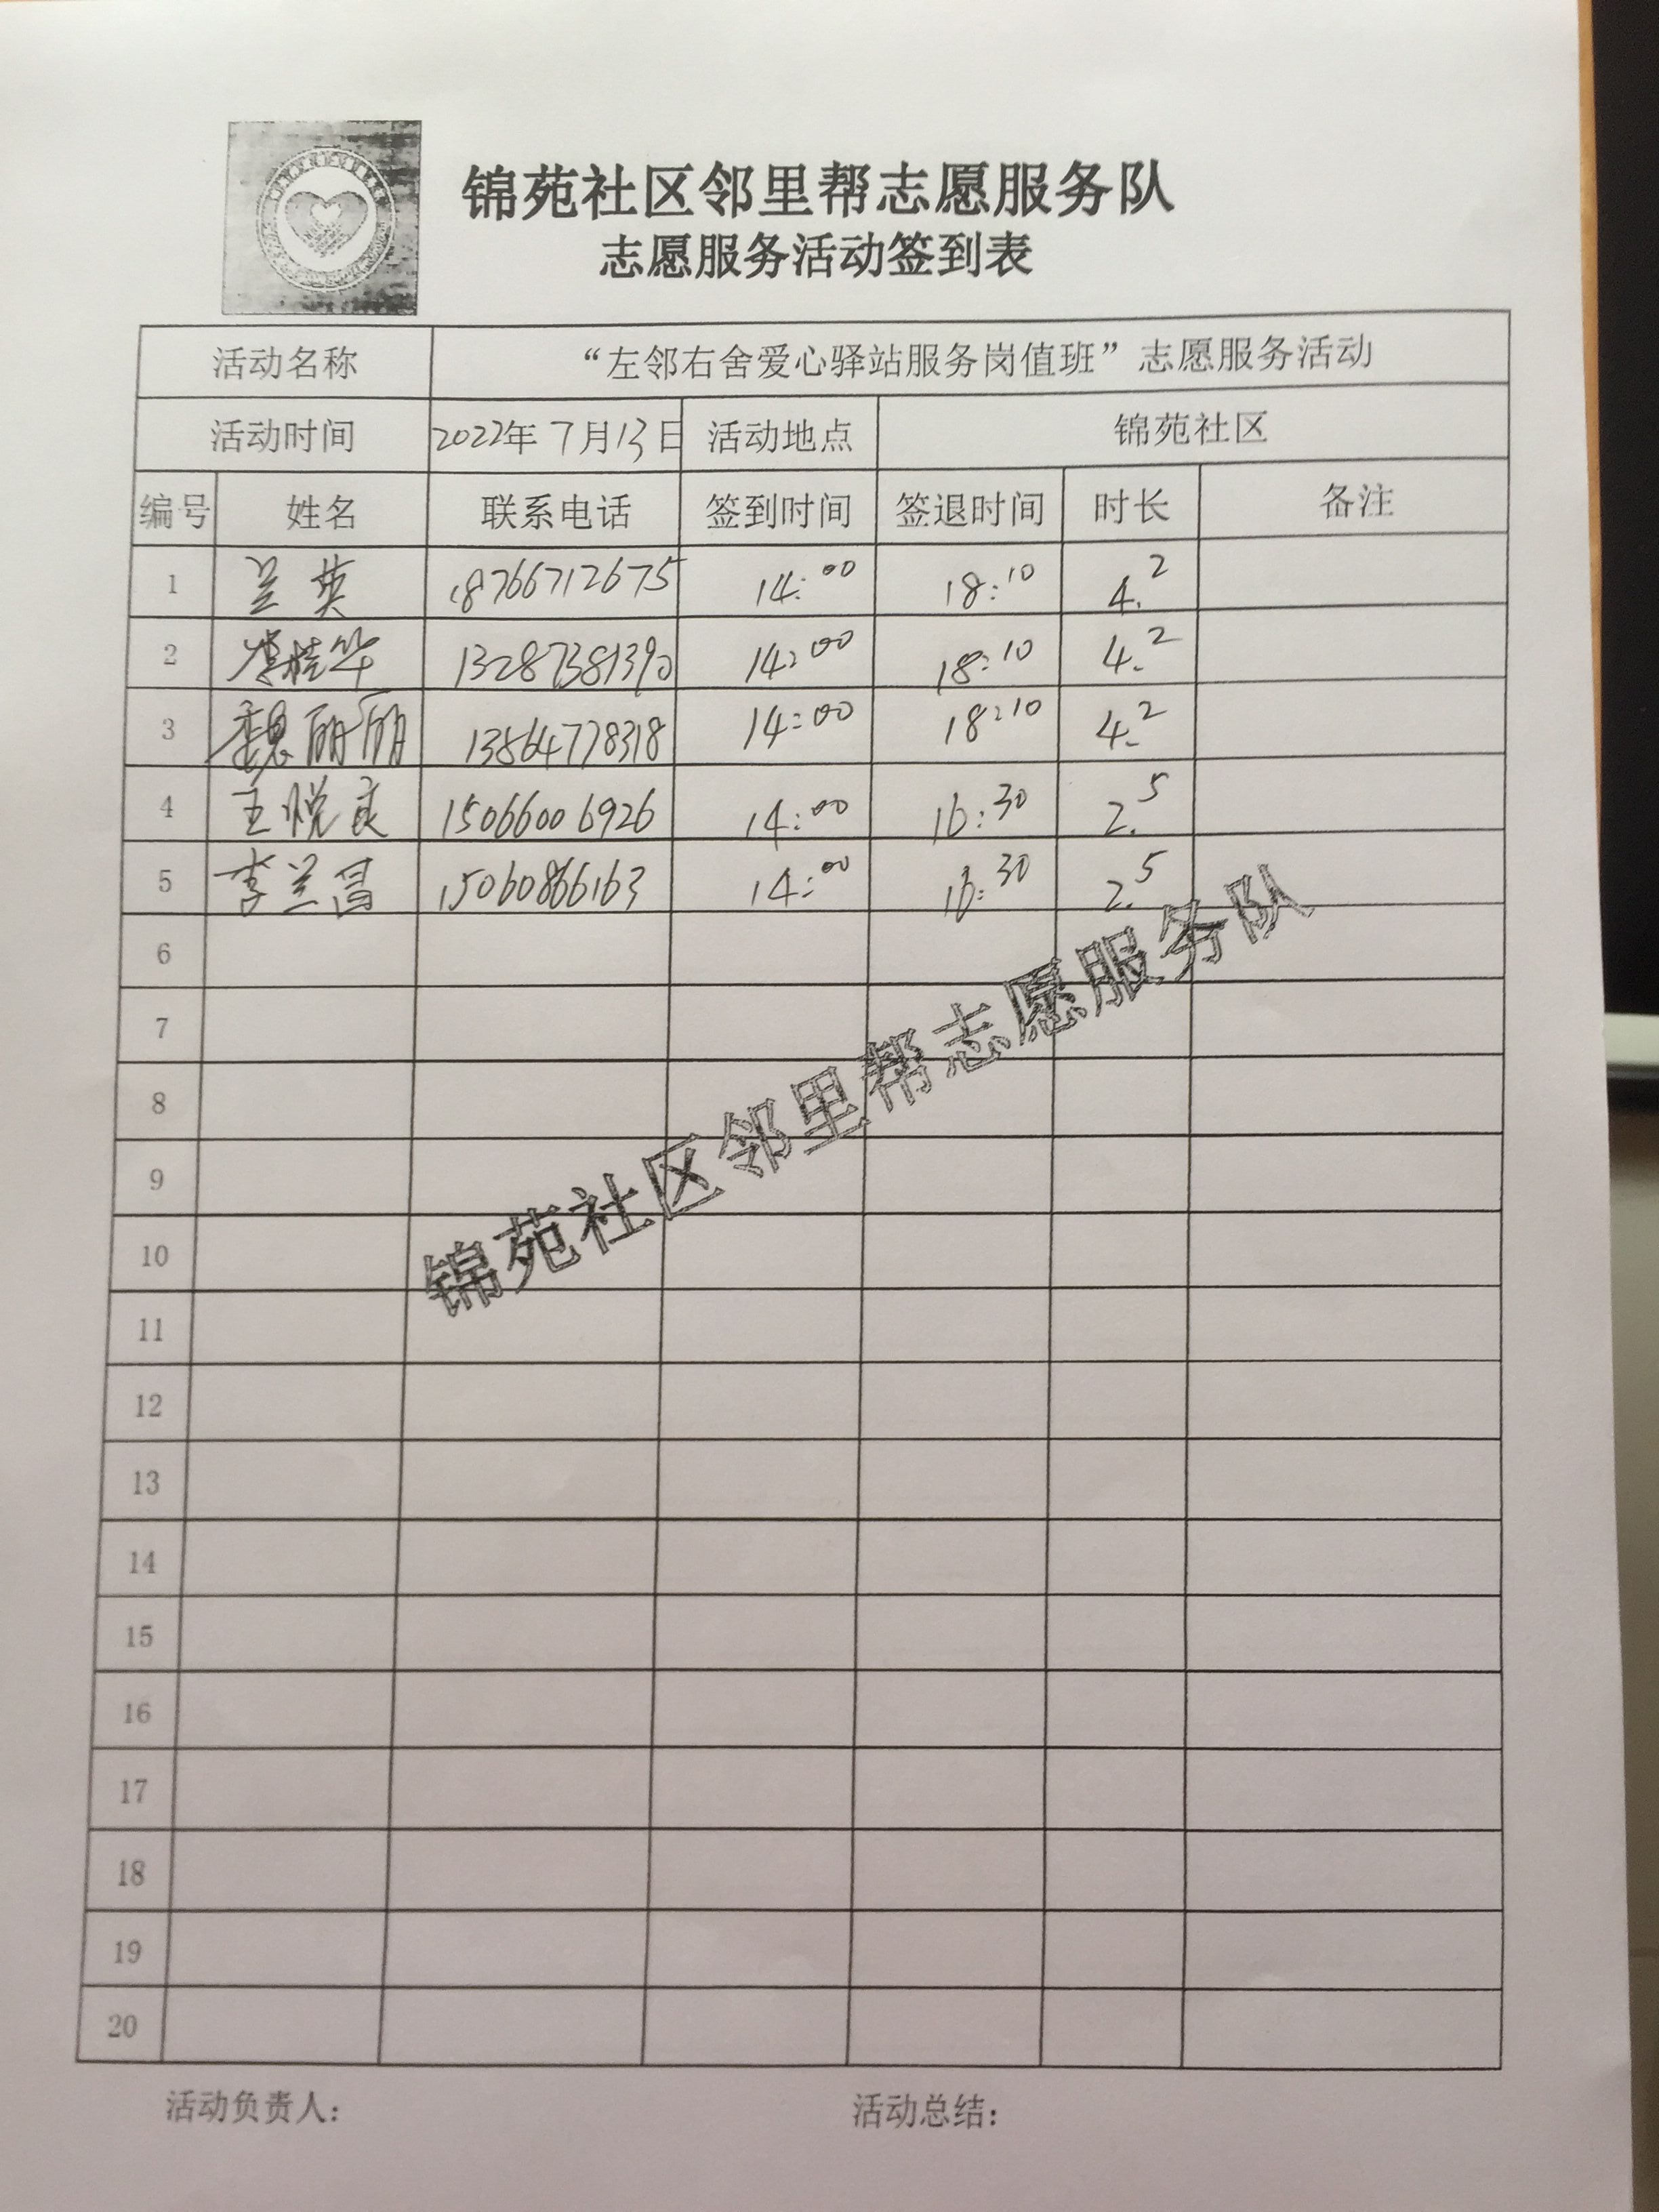 锦苑社区邻里帮志愿服务队
志愿服务活动签到表
活动名称 “左邻右舍爱心驿站服务岗值班”志愿服务活动
活动时间 2022年7月13日 活动地点 锦苑社区
编号 姓名 联系电话 签到时间 签退时间 时长 备注
1 吴英 18766712675 14:00 18:10 4.2
2 桂华 13287381390 14:00 18:10 4.2
3 魏丽丽 13864778318 14:00 18:10 4.2
4 王悦良 15066006926 14:00 16:30 2.5
5 李兰昌 15060866163 14:00 16:30 2.5
6
7
8
9
10
11
12
13
14
15
16
17
18
19
20
锦苑社区邻里帮志愿服务队
活动负责人: 活动总结: